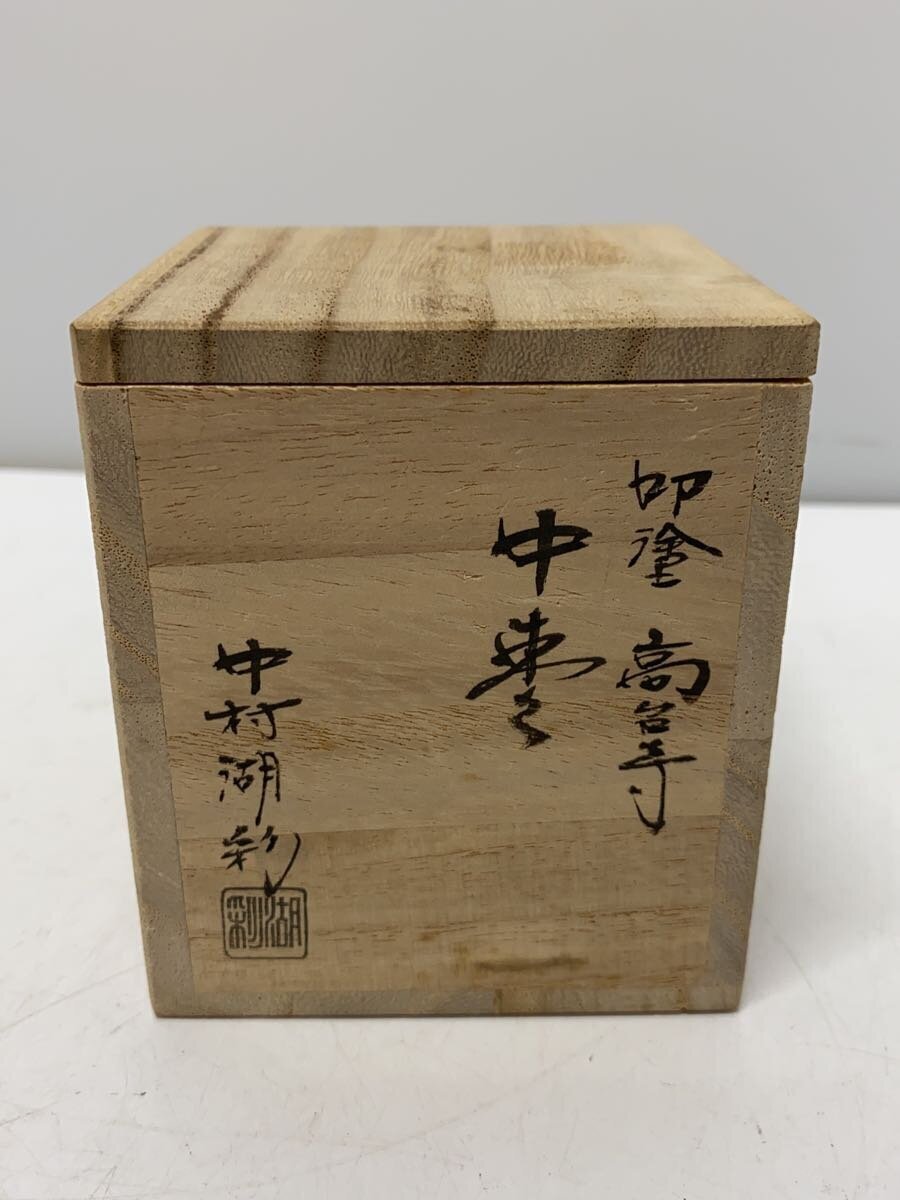 叩塗 高台寺
中棗
中村湖彩
湖彩